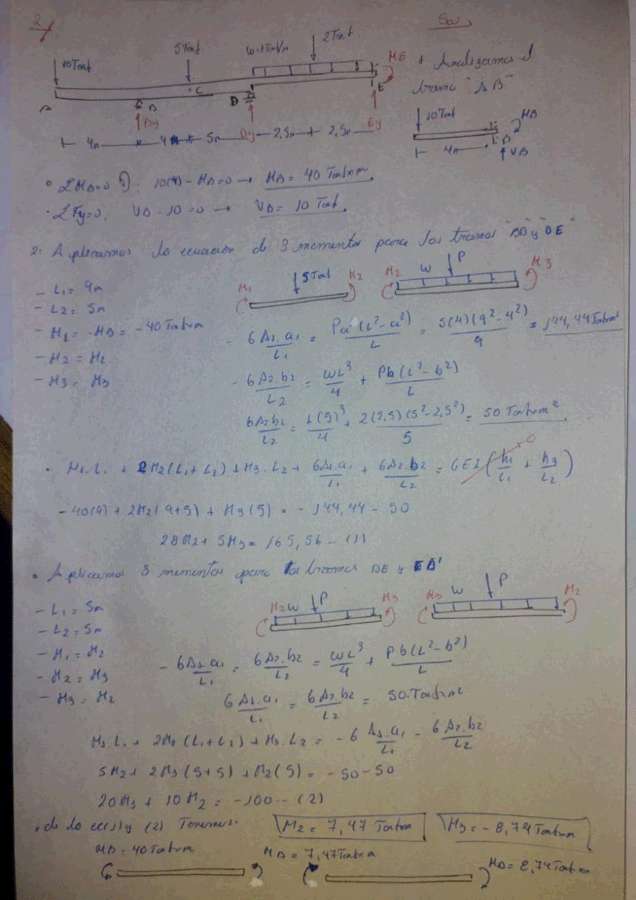 2
Sol.
10 Tonf 5 Tonf w=1Ton/m 2 Tonf ME
* Analizamos el
tramo "AB"
A B C D E
By Dy Ey
4m 4m 5m 2,5m 2,5m
10 Tonf MB
4m B
VB
• ΣMB=0: 10(4) - MB=0 → MB = 40 Tonf·m
• ΣFy=0: VB - 10 = 0 → VB = 10 Tonf.
2. Aplicamos la ecuación de 3 momentos para los tramos "BD y DE"
- L1 = 9m
- L2 = 5m
- M1 = -MB = -40 Tonf·m
- M2 = M2
- M3 = M3
M1 5 Tonf M2 M2 w P M3
- 6A1.a1/L1 = Pa(L²-a²)/L = 5(4)(9²-4²)/9 = 144,44 Tonf·m²
- 6A2.b2/L2 = wL³/4 + Pb(L²-b²)/L
6A2b2/L2 = 1(5)³/4 + 2(2,5)(5²-2,5²)/5 = 50 Tonf·m²
• M1.L1 + 2M2(L1+L2) + M3.L2 + 6A1.a1/L1 + 6A2.b2/L2 = 6EI(h1/L1 + h3/L2) 0
-40(9) + 2M2(9+5) + M3(5) = -144,44 - 50
28M2 + 5M3 = 165,56 -- (1)
• Aplicamos 3 momentos para los tramos DE y EB'
- L1 = 5m
- L2 = 5m
- M1 = M2
- M2 = M3
- M3 = M2
M2 w P M3 M3 w P M2
- 6A1.a1/L1 = 6A2.b2/L2 = wL³/4 + Pb(L²-b²)/L
6A1.a1/L1 = 6A2.b2/L2 = 50 Tonf·m²
M1.L1 + 2M2(L1+L2) + M3.L2 = -6A1.a1/L1 - 6A2.b2/L2
5M2 + 2M3(5+5) + M2(5) = -50 -50
20M3 + 10M2 = -100 -- (2)
• de la ec(1) y (2) Tenemos: M2 = 7,47 Tonf·m M3 = -8,74 Tonf·m
MB = 40 Tonf·m MD = 7,47 Tonf·m MD = 8,74 Tonf·m